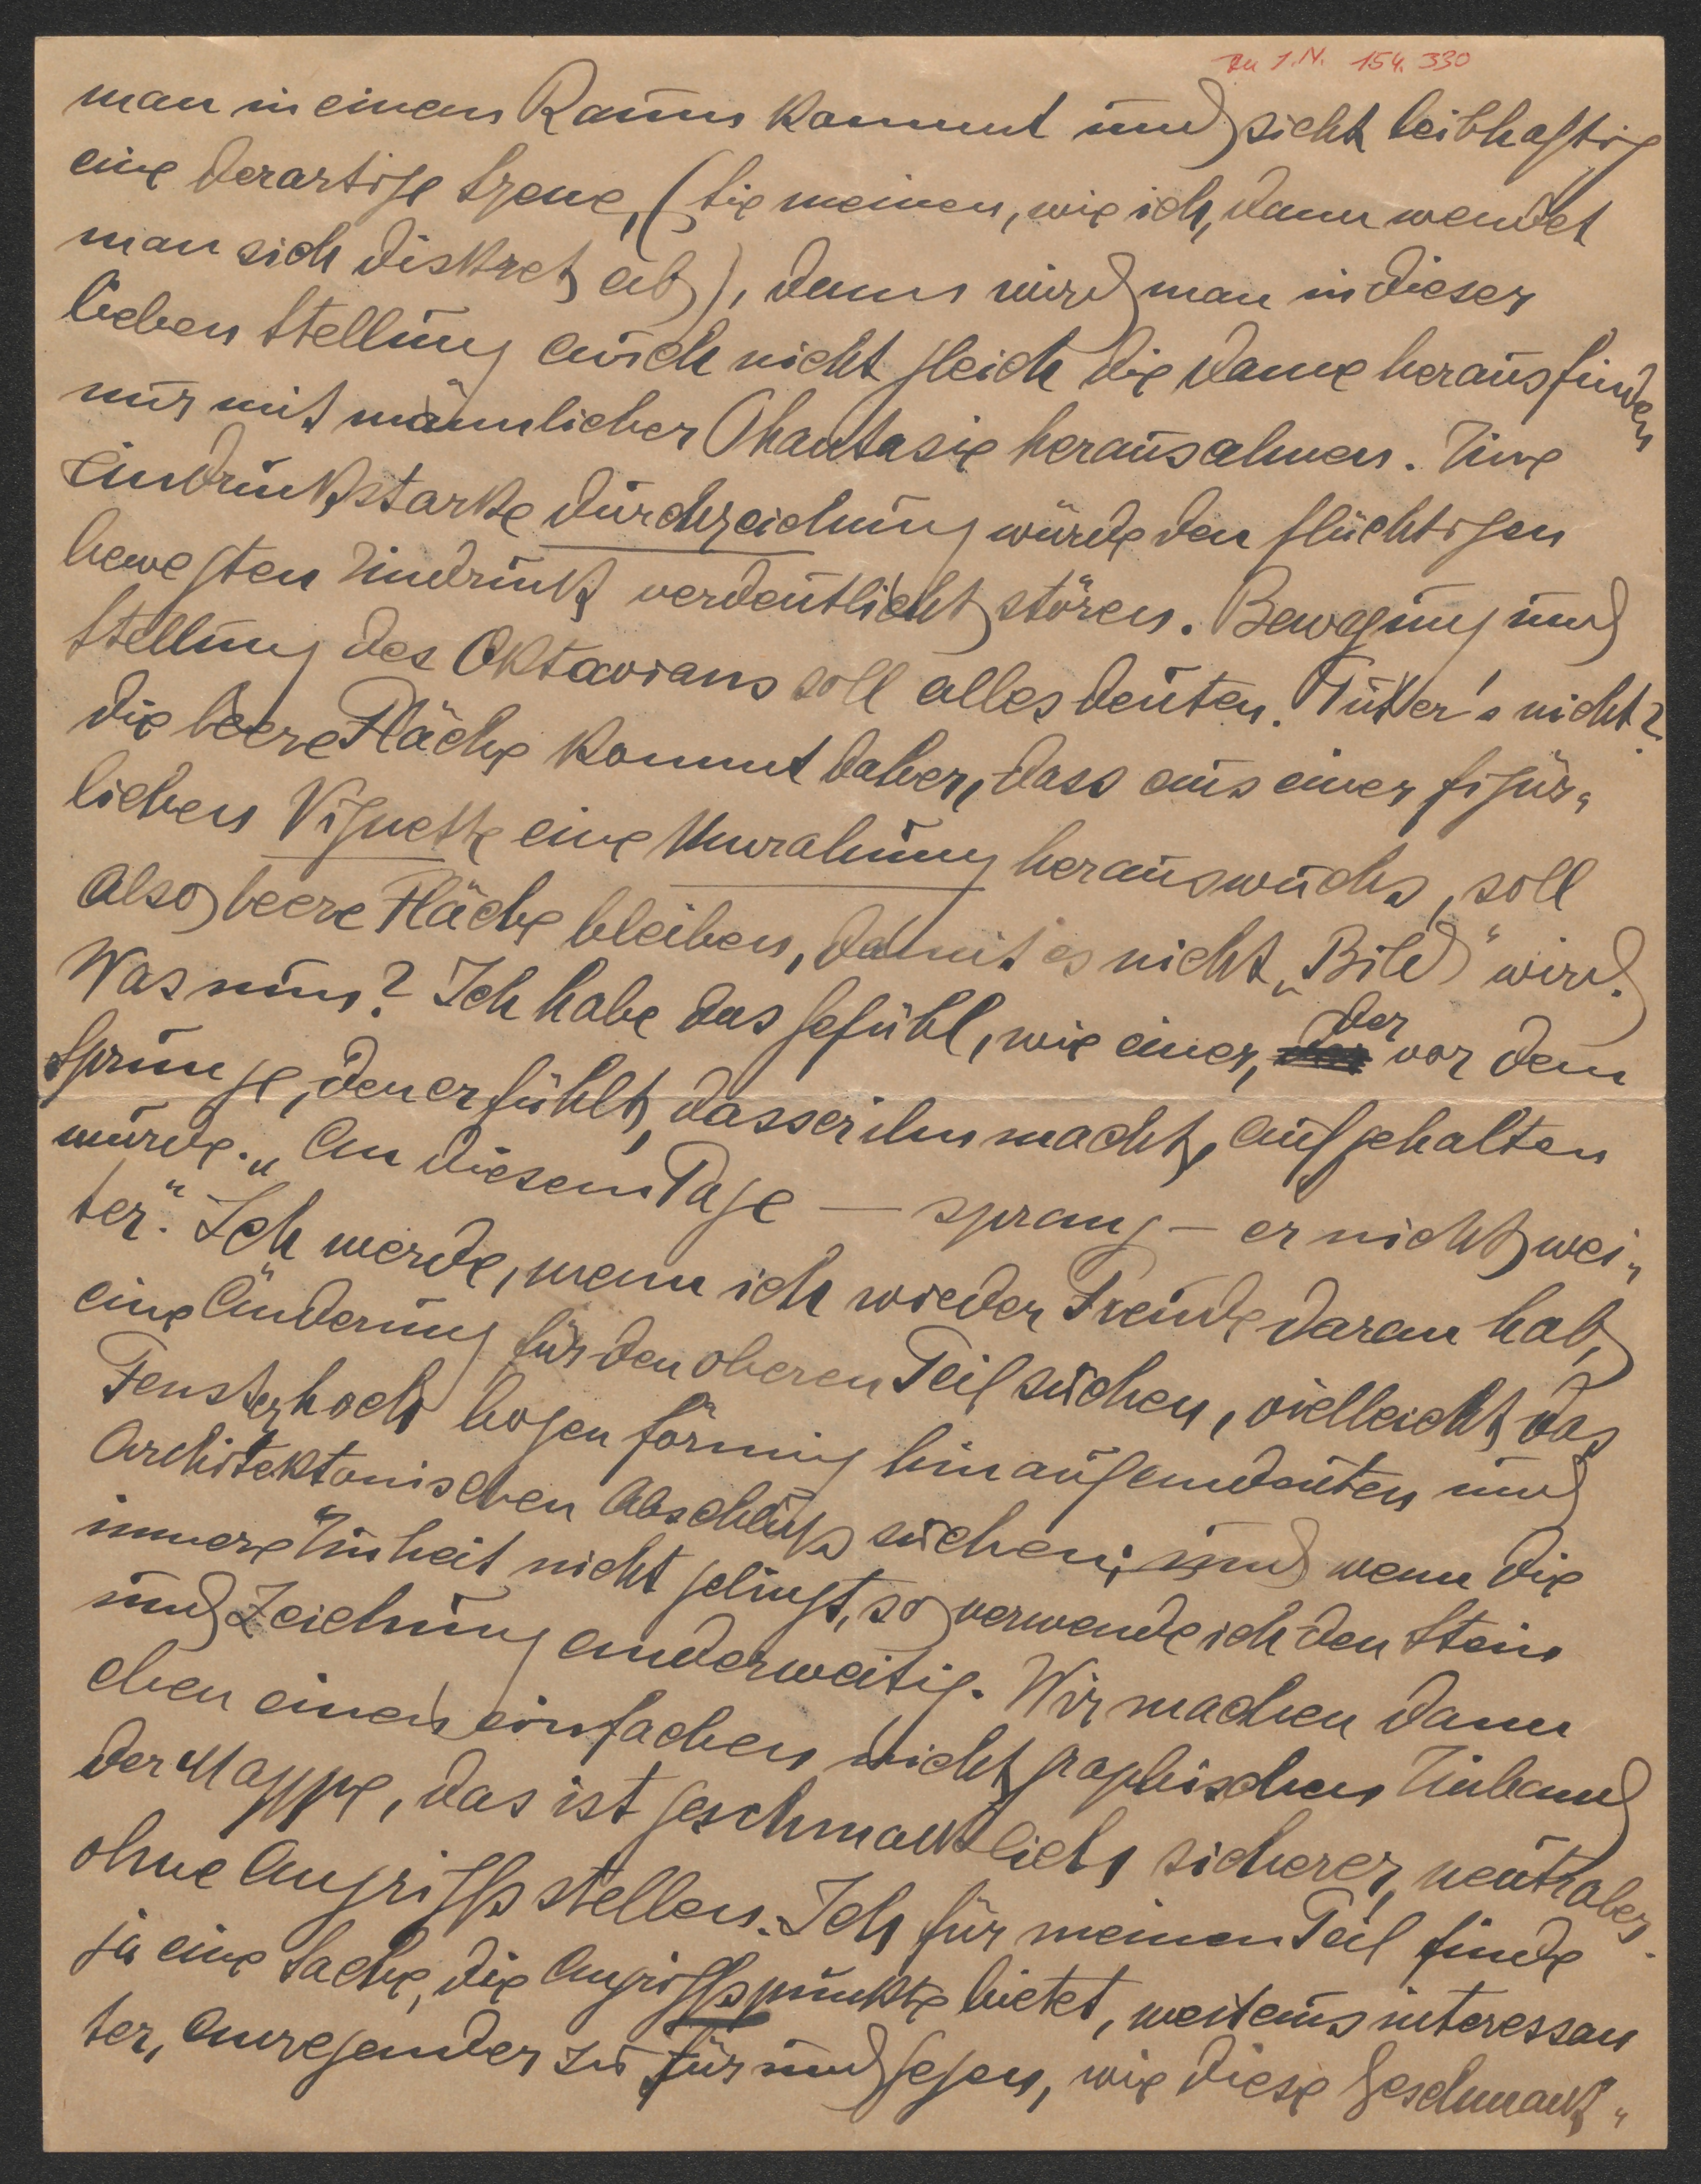 Zu I.N. 154.330
man in einen Raum kommt und sieht leibhaftig
eine derartige Szene, (Sie meinen, wie ich, dann wendet
man sich diskret ab), dann wird man in dieser
lieben Stellung auch nicht gleich die Dame herausfinden
nur mit männlicher Phantasie herausahnen. Eine
eindruckstarke Durchzeichnung würde den flüchtigen
bewegten Eindruck verdeutlicht stören. Bewegung und
Stellung des Oktavians soll alles deuten. Tut er's nicht?
Die leere Fläche kommt daher, dass aus einer figür„
lichen Vignette eine Umrahmung herauswuchs, soll
also leere Fläche bleiben, damit es nicht „Bild“ wird.
Was nun? Ich habe das Gefühl, wie einer, der vor dem
Sprunge, den er fühlt, dass er ihn macht, aufgehalten
wurde. „An diesem Tage — sprang — er nicht wei„
ter.“ Ich werde, wenn ich wieder Freude daran hab,
eine Änderung für den oberen Teil suchen, vielleicht das
Fenster hoch bogenförmig hinaufandeuten und
Architektonischen Abschluß suchen; und wenn die
innere Einheit nicht gelingt, so verwende ich den Stein
und Zeichnung anderweitig. Wir machen dann
eben einen einfachen nicht graphischen Einband
der Mappe, das ist geschmacklich sicherer, neutraler.
ohne Angriffsstellen. Ich für meinen Teil finde
ja eine Sache, die Angriffspunkte bietet, weitaus interessan
ter, anregender zu für und gegen, wie diese Geschmack„